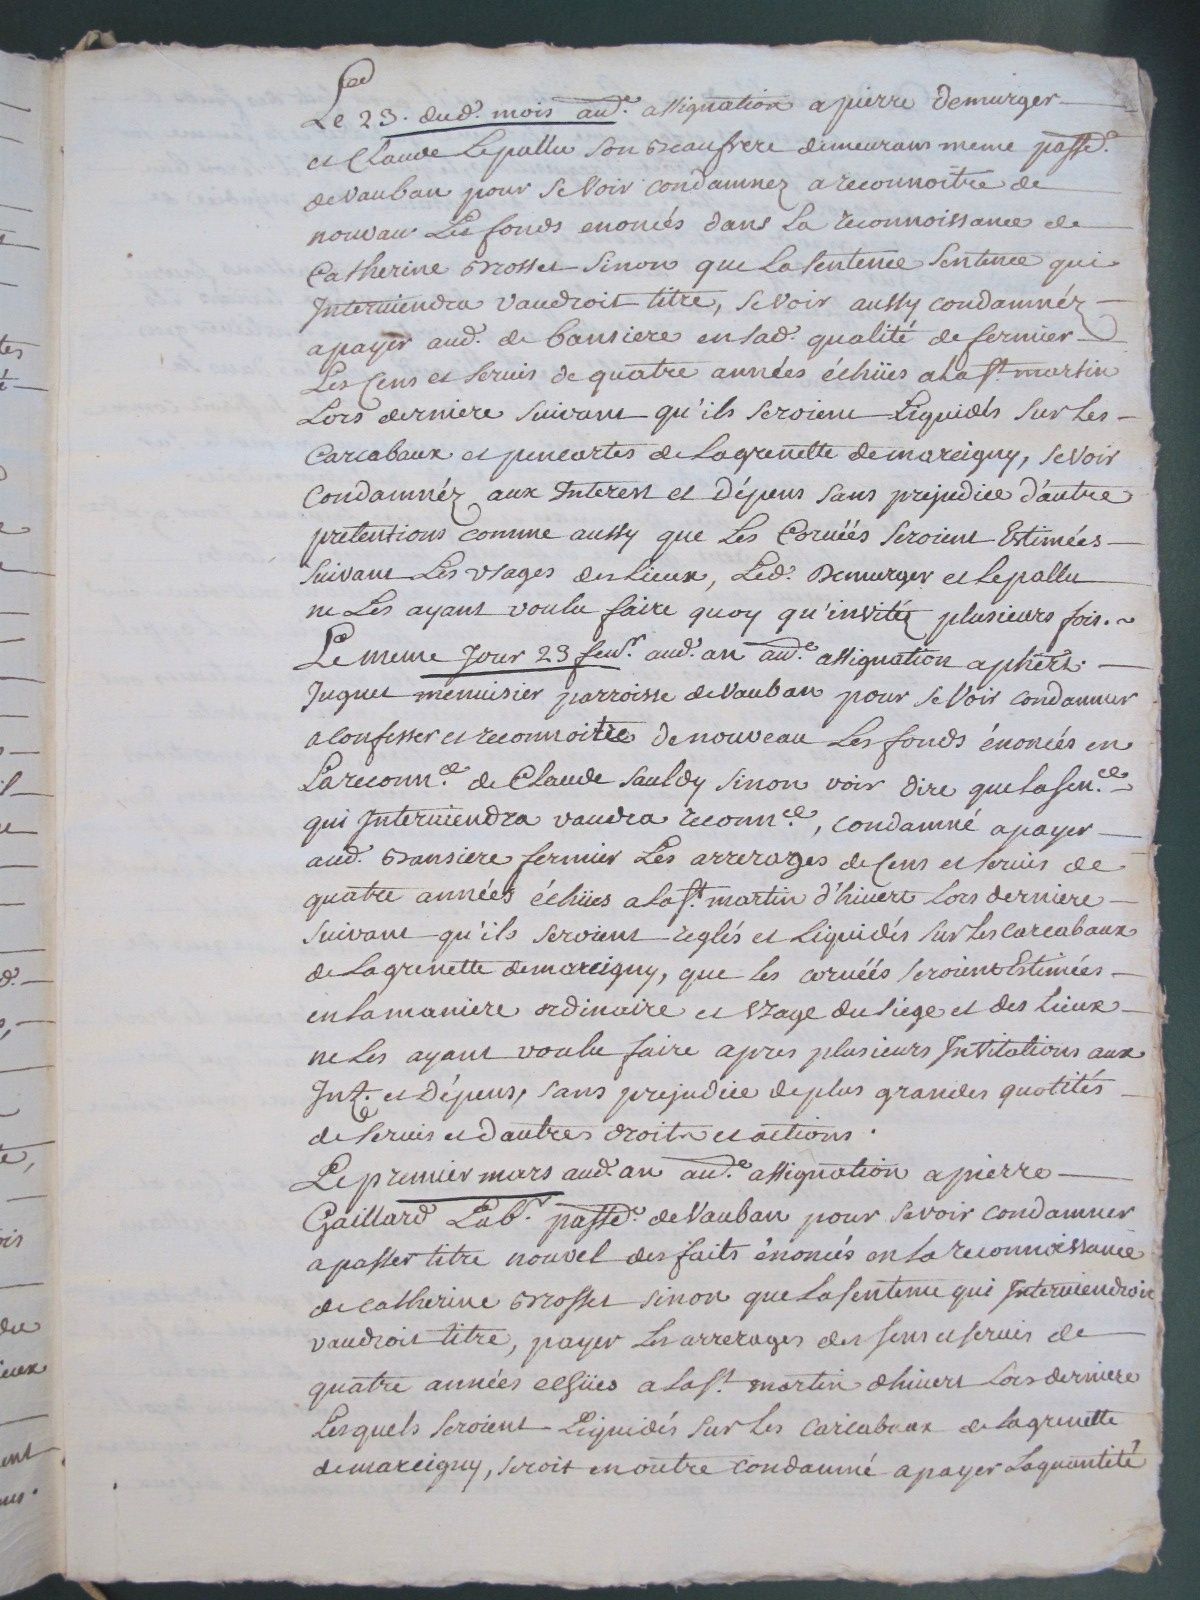 Le 23. dud. mois aud.e assignation a pierre Demurger
et Claude Lepallu son Beaufrere demeurans meme passe.
de Vauban pour se Voir condamnez a reconnoitre de
nouveau Les fonds enoncés dans La reconnoissance de
Catherine Brosset Sinon que La Sentence Sentence qui
Interviendra vaudroit titre, se voir aussy condamnéz
a payer aud. de bansiere en sad. qualité de fermier
Les Cens et Servis de quatre années échües a La St. martin
Lors derniere suivant qu'ils seroient Liquidés sur Les
Carcabaux et pencartes de La grenette de marcigny, se voir
Condamnéz aux Interest et dépens sans prejudice d'autre
pretentions comme aussy que Les Corvéés seroient Estimées
suivant Les Usages des Lieux, Led. Demurger et Lepallu
ne Les ayant voulu faire quoy qu'invitéz plusieurs fois. ~
Le meme Jour 23 fevr. aud. an aud.e assignation a phert.
Juguet menuisier parroisse de Vauban pour se Voir condamner
a Confesser et reconnoitre de nouveau Les fonds énoncés en
La reconn.ce de Claude Sauldy sinon voir dire que La sen.ce
qui Interviendra vaudra reconn.ce, condamné a payer
aud. Bansiere fermier Les arrerages de Cens et servis de
quatre années échües a La St. martin d'hivert Lors derniere
suivant qu'ils seroient reglés et Liquidés sur Les Carcabaux
de La grenette de marcigny, que les corvéés seroient Estimées
en La maniere ordinaire et Uzage du siége et des Lieux
ne Les ayant voulu faire apres plusieurs Invitations aux
Int. et dépens, sans prejudice de plus grandes quotités
de Servis et d'autres droits et actions.
Le premier mars aud. an aud.e assignation a pierre
Gaillard Labr. passe. de Vauban pour se voir condamner
a passer titre nouvel des faits énoncés en La reconnoissance
de Catherine Brosset sinon que La sentence qui Interviendroit
vaudroit titre, payer Les arrerages des Sens et servis de
quatre années echües a La St. martin d'hivert Lors derniere
Lesquels seroient Liquidés sur Les Carcabeaux de La grenette
de marcigny, seroit en outre condamné a payer La quantité